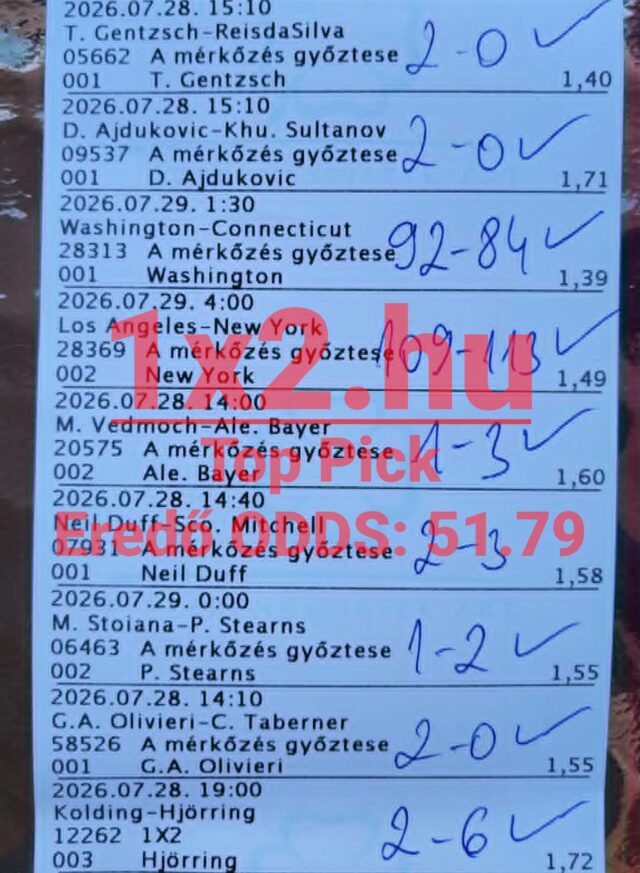 2026.07.28. 15:10
T. Gentzsch-ReisdaSilva
05662 A mérkőzés győztese 2-0 ✓
001 T. Gentzsch 1,40
2026.07.28. 15:10
D. Ajdukovic-Khu. Sultanov
09537 A mérkőzés győztese 2-0 ✓
001 D. Ajdukovic 1,71
2026.07.29. 1:30
Washington-Connecticut
28313 A mérkőzés győztese 92-84 ✓
001 Washington 1,39
2026.07.29. 4:00
Los Angeles-New York
28369 A mérkőzés győztese 109-113 ✓
002 New York 1,49
1x2.hu
2026.07.28. 14:00
M. Vedmoch-Ale. Bayer
20575 A mérkőzés győztese 1-3 ✓
002 Ale. Bayer 1,60
Top Pick
2026.07.28. 14:40
Neil Duff-Sco. Mitchell
07931 A mérkőzés győztese 2-3
001 Neil Duff 1,58
Eredő ODDS: 51.79
2026.07.29. 0:00
M. Stoiana-P. Stearns
06463 A mérkőzés győztese 1-2 ✓
002 P. Stearns 1,55
2026.07.28. 14:10
G.A. Olivieri-C. Taberner
58526 A mérkőzés győztese 2-0 ✓
001 G.A. Olivieri 1,55
2026.07.28. 19:00
Kolding-Hjörring
12262 1X2 2-6 ✓
003 Hjörring 1,72